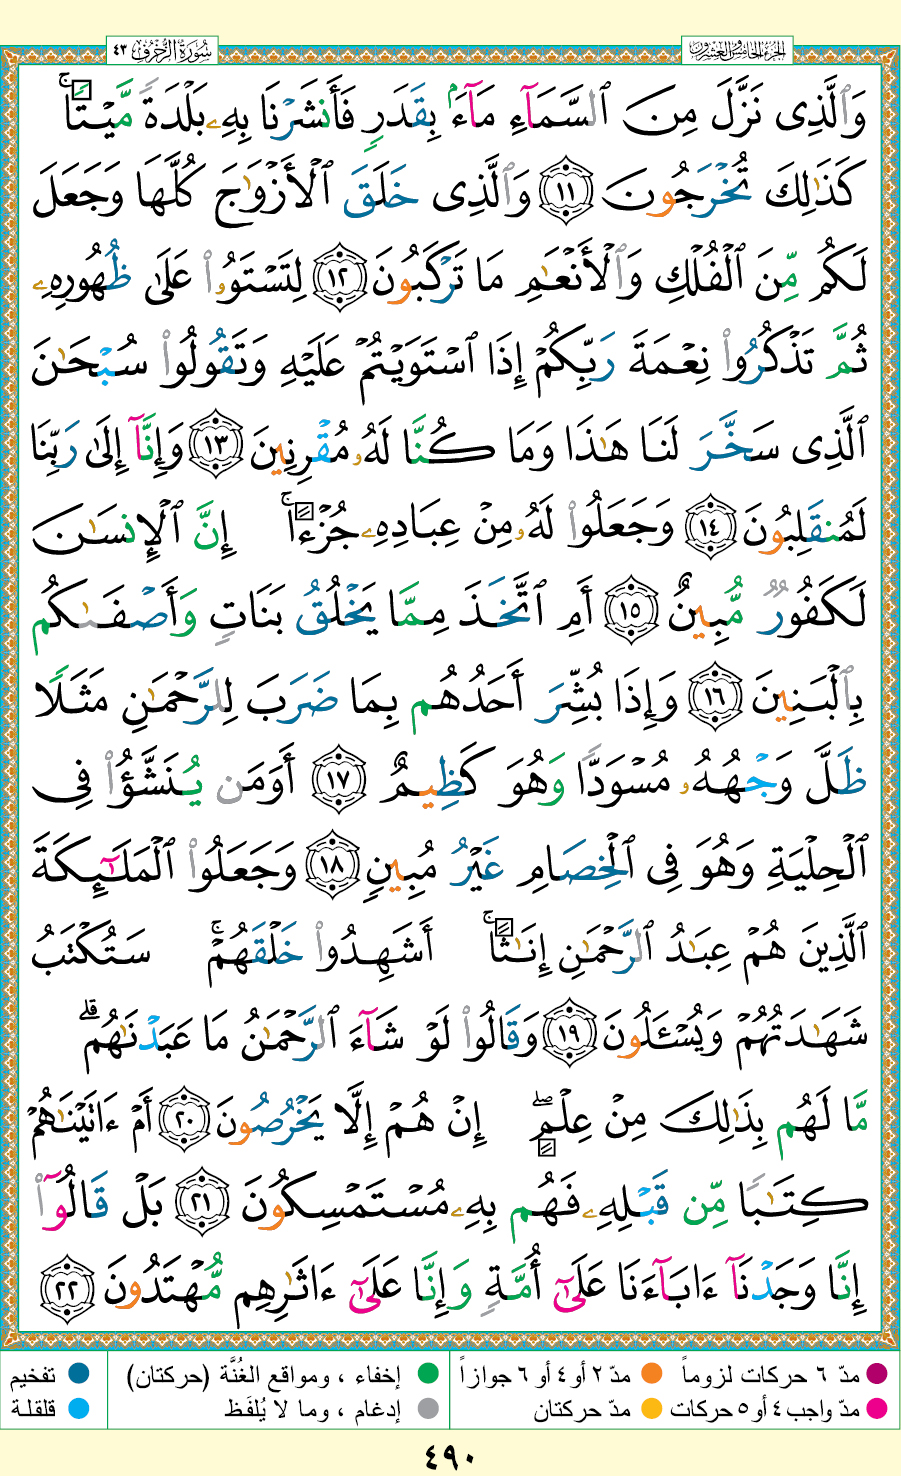 الجزء الخامس والعشرون
سورة الزخرف ٤٣
وَٱلَّذِى نَزَّلَ مِنَ ٱلسَّمَآءِ مَآءَۢ بِقَدَرٍۢ فَأَنشَرْنَا بِهِۦ بَلْدَةً مَّيْتًا ۚ
كَذَٰلِكَ تُخْرَجُونَ ١١ وَٱلَّذِى خَلَقَ ٱلْأَزْوَٰجَ كُلَّهَا وَجَعَلَ
لَكُم مِّنَ ٱلْفُلْكِ وَٱلْأَنْعَٰمِ مَا تَرْكَبُونَ ١٢ لِتَسْتَوُۥا۟ عَلَىٰ ظُهُورِهِۦ
ثُمَّ تَذْكُرُوا۟ نِعْمَةَ رَبِّكُمْ إِذَا ٱسْتَوَيْتُمْ عَلَيْهِ وَتَقُولُوا۟ سُبْحَٰنَ
ٱلَّذِى سَخَّرَ لَنَا هَٰذَا وَمَا كُنَّا لَهُۥ مُقْرِنِينَ ١٣ وَإِنَّآ إِلَىٰ رَبِّنَا
لَمُنقَلِبُونَ ١٤ وَجَعَلُوا۟ لَهُۥ مِنْ عِبَادِهِۦ جُزْءًا ۚ إِنَّ ٱلْإِنسَٰنَ
لَكَفُورٌ مُّبِينٌ ١٥ أَمِ ٱتَّخَذَ مِمَّا يَخْلُقُ بَنَاتٍ وَأَصْفَىٰكُم
بِٱلْبَنِينَ ١٦ وَإِذَا بُشِّرَ أَحَدُهُم بِمَا ضَرَبَ لِلرَّحْمَٰنِ مَثَلًا
ظَلَّ وَجْهُهُۥ مُسْوَدًّا وَهُوَ كَظِيمٌ ١٧ أَوَمَن يُنَشَّؤُا۟ فِى
ٱلْحِلْيَةِ وَهُوَ فِى ٱلْخِصَامِ غَيْرُ مُبِينٍ ١٨ وَجَعَلُوا۟ ٱلْمَلَٰٓئِكَةَ
ٱلَّذِينَ هُمْ عِبَٰدُ ٱلرَّحْمَٰنِ إِنَٰثًا ۚ أَشَهِدُوا۟ خَلْقَهُمْ ۚ سَتُكْتَبُ
شَهَٰدَتُهُمْ وَيُسْـَٔلُونَ ١٩ وَقَالُوا۟ لَوْ شَآءَ ٱلرَّحْمَٰنُ مَا عَبَدْنَٰهُم ۗ
مَّا لَهُم بِذَٰلِكَ مِنْ عِلْمٍ ۖ إِنْ هُمْ إِلَّا يَخْرُصُونَ ٢٠ أَمْ ءَاتَيْنَٰهُمْ
كِتَٰبًا مِّن قَبْلِهِۦ فَهُم بِهِۦ مُسْتَمْسِكُونَ ٢١ بَلْ قَالُوٓا۟
إِنَّا وَجَدْنَآ ءَابَآءَنَا عَلَىٰٓ أُمَّةٍ وَإِنَّا عَلَىٰٓ ءَاثَٰرِهِم مُّهْتَدُونَ ٢٢
مدّ ٦ حركات لزوماً
مدّ ٢ أو ٤ أو ٦ جوازاً
إخفاء ، ومواقع الغُنَّة (حركتان)
تفخيم
مدّ واجب ٤ أو ٥ حركات
مدّ حركتان
إدغام ، وما لا يُلفَظ
قلقلة
٤٩٠